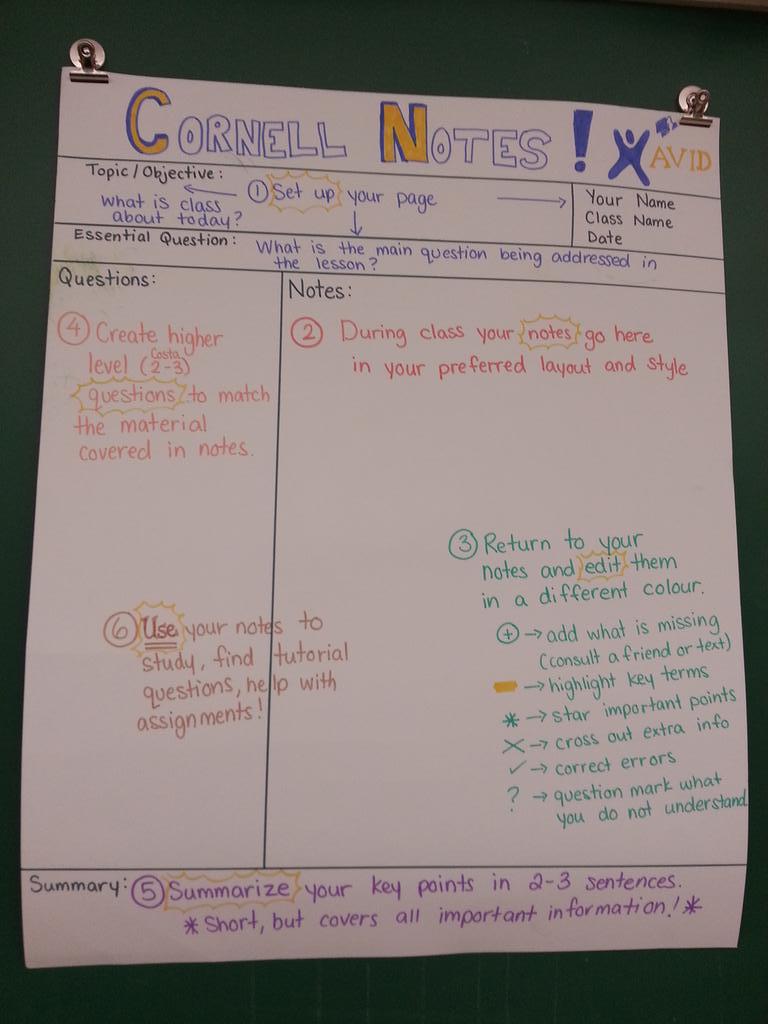 CORNELL NOTES!
AVID
Topic/Objective:
What is class
about today?
① Set up your page
Your Name
Class Name
Date
Essential Question: What is the main question being addressed in
the lesson?
Questions:
④ Create higher
level (Costa 2-3)
questions to match
the material
covered in notes.
Notes:
② During class your notes go here
in your preferred layout and style
③ Return to your
notes and edit them
in a different colour.
+ → add what is missing
(consult a friend or text)
→ highlight key terms
* → star important points
× → cross out extra info
✓ → correct errors
? → question mark what
you do not understand
⑥ Use your notes to
study, find tutorial
questions, help with
assignments!
Summary: ⑤ Summarize your key points in 2-3 sentences.
* Short, but covers all important information! *